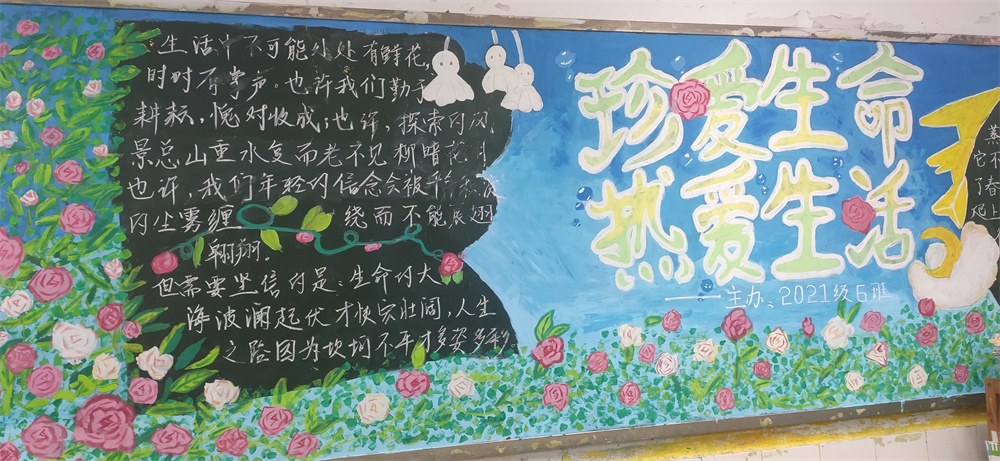 生活中不可能处处有鲜花,
时时有掌声。也许我们勤于
耕耘,愧对收成;也许,探索的风
景总山重水复而老不见柳暗花
也许,我们年轻的信念会被平
的尘雾缠绕而不能展翅
翱翔。
但需要坚信的是:生命的大
海波澜起伏才恢宏壮阔,人生
之路因为坎坷不平才多姿多彩
珍爱生命
热爱生活
——主办:2021级6班
蒸
它不
了春
爬上